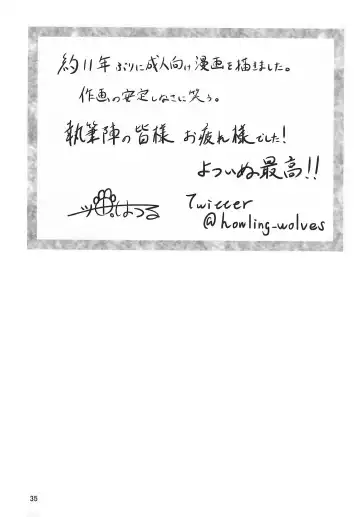 約11年ぶりに成人向け漫画を描きました。
作画の安定しなさに笑う。
執筆陣の皆様 お疲れ様でした!
よついぬ最高!!
はつる
Twitter
@howling-wolves
35